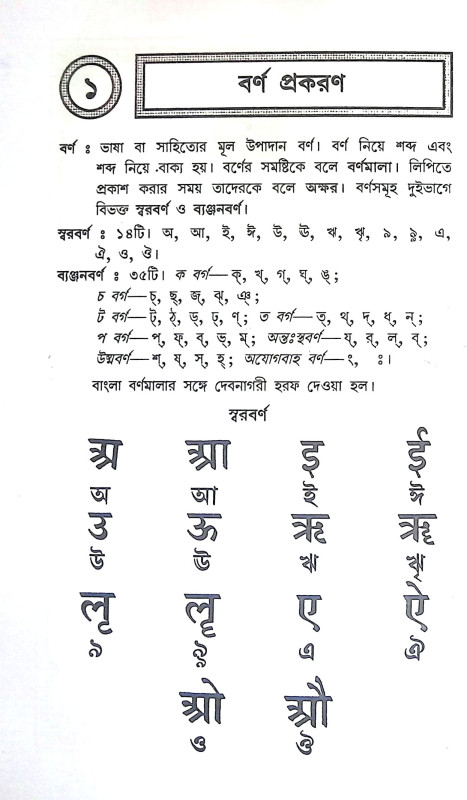 ১
বর্ণ প্রকরণ
বর্ণ ঃ ভাষা বা সাহিত্যের মূল উপাদান বর্ণ। বর্ণ নিয়ে শব্দ এবং
শব্দ নিয়ে বাক্য হয়। বর্ণের সমষ্টিকে বলে বর্ণমালা। লিপিতে
প্রকাশ করার সময় তাদেরকে বলে অক্ষর। বর্ণসমূহ দুইভাগে
বিভক্ত স্বরবর্ণ ও ব্যঞ্জনবর্ণ।
স্বরবর্ণ ঃ ১৪টি। অ, আ, ই, ঈ, উ, ঊ, ঋ, ৠ, ঌ, ৡ, এ,
ঐ, ও, ঔ।
ব্যঞ্জনবর্ণ ঃ ৩৫টি। ক বর্গ—ক্, খ্, গ্, ঘ্, ঙ্;
চ বর্গ—চ্, ছ্, জ্, ঝ্, ঞ্;
ট বর্গ—ট্, ঠ্, ড্, ঢ্, ণ্; ত বর্গ—ত্, থ্, দ্, ধ্, ন্;
প বর্গ—প্, ফ্, ব্, ভ্, ম্; অন্তঃস্থবর্ণ—য্, র্, ল্, ব্;
উষ্মবর্ণ—শ্, ষ্, স্, হ্; অযোগবাহ বর্ণ—ং, ঃ।
বাংলা বর্ণমালার সঙ্গে দেবনাগরী হরফ দেওয়া হল।
স্বরবর্ণ
अ आ इ ई
অ আ ই ঈ
उ ऊ ऋ ॠ
উ ঊ ঋ ৠ
लृ लॄ ए ऐ
ঌ ৡ এ ঐ
ओ औ
ও ঔ